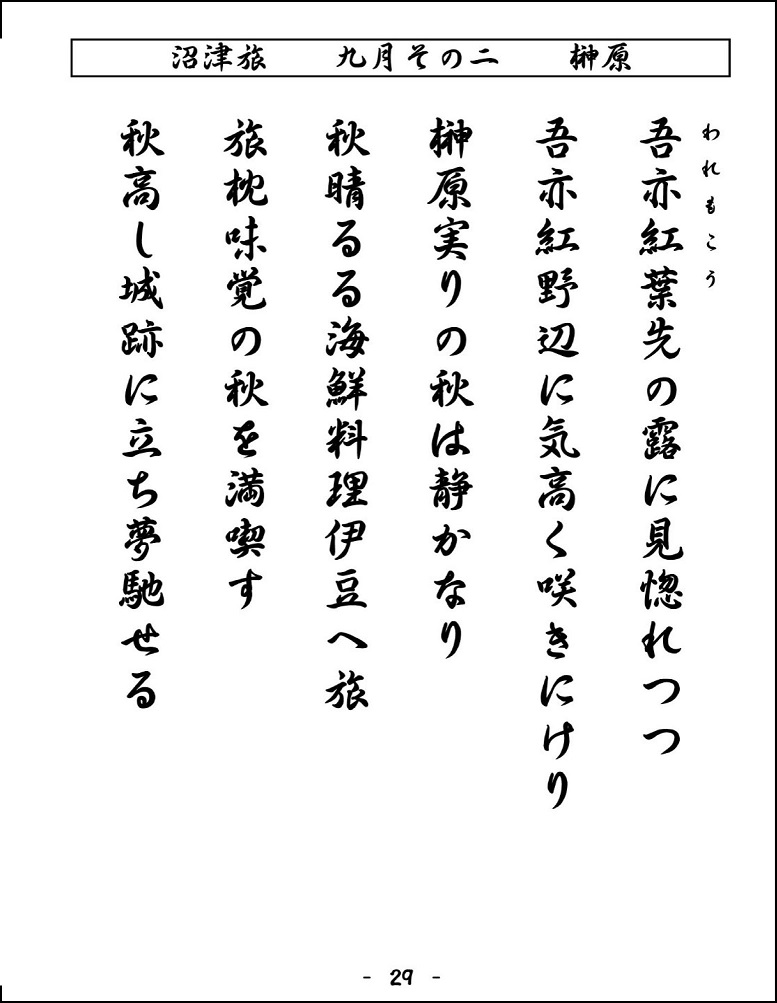 沼津旅　九月その二　榊原
われもこう
吾亦紅葉先の露に見惚れつつ
吾亦紅野辺に気高く咲きにけり
榊原実りの秋は静かなり
秋晴るる海鮮料理伊豆へ旅
旅枕味覚の秋を満喫す
秋高し城跡に立ち夢馳せる
- 29 -